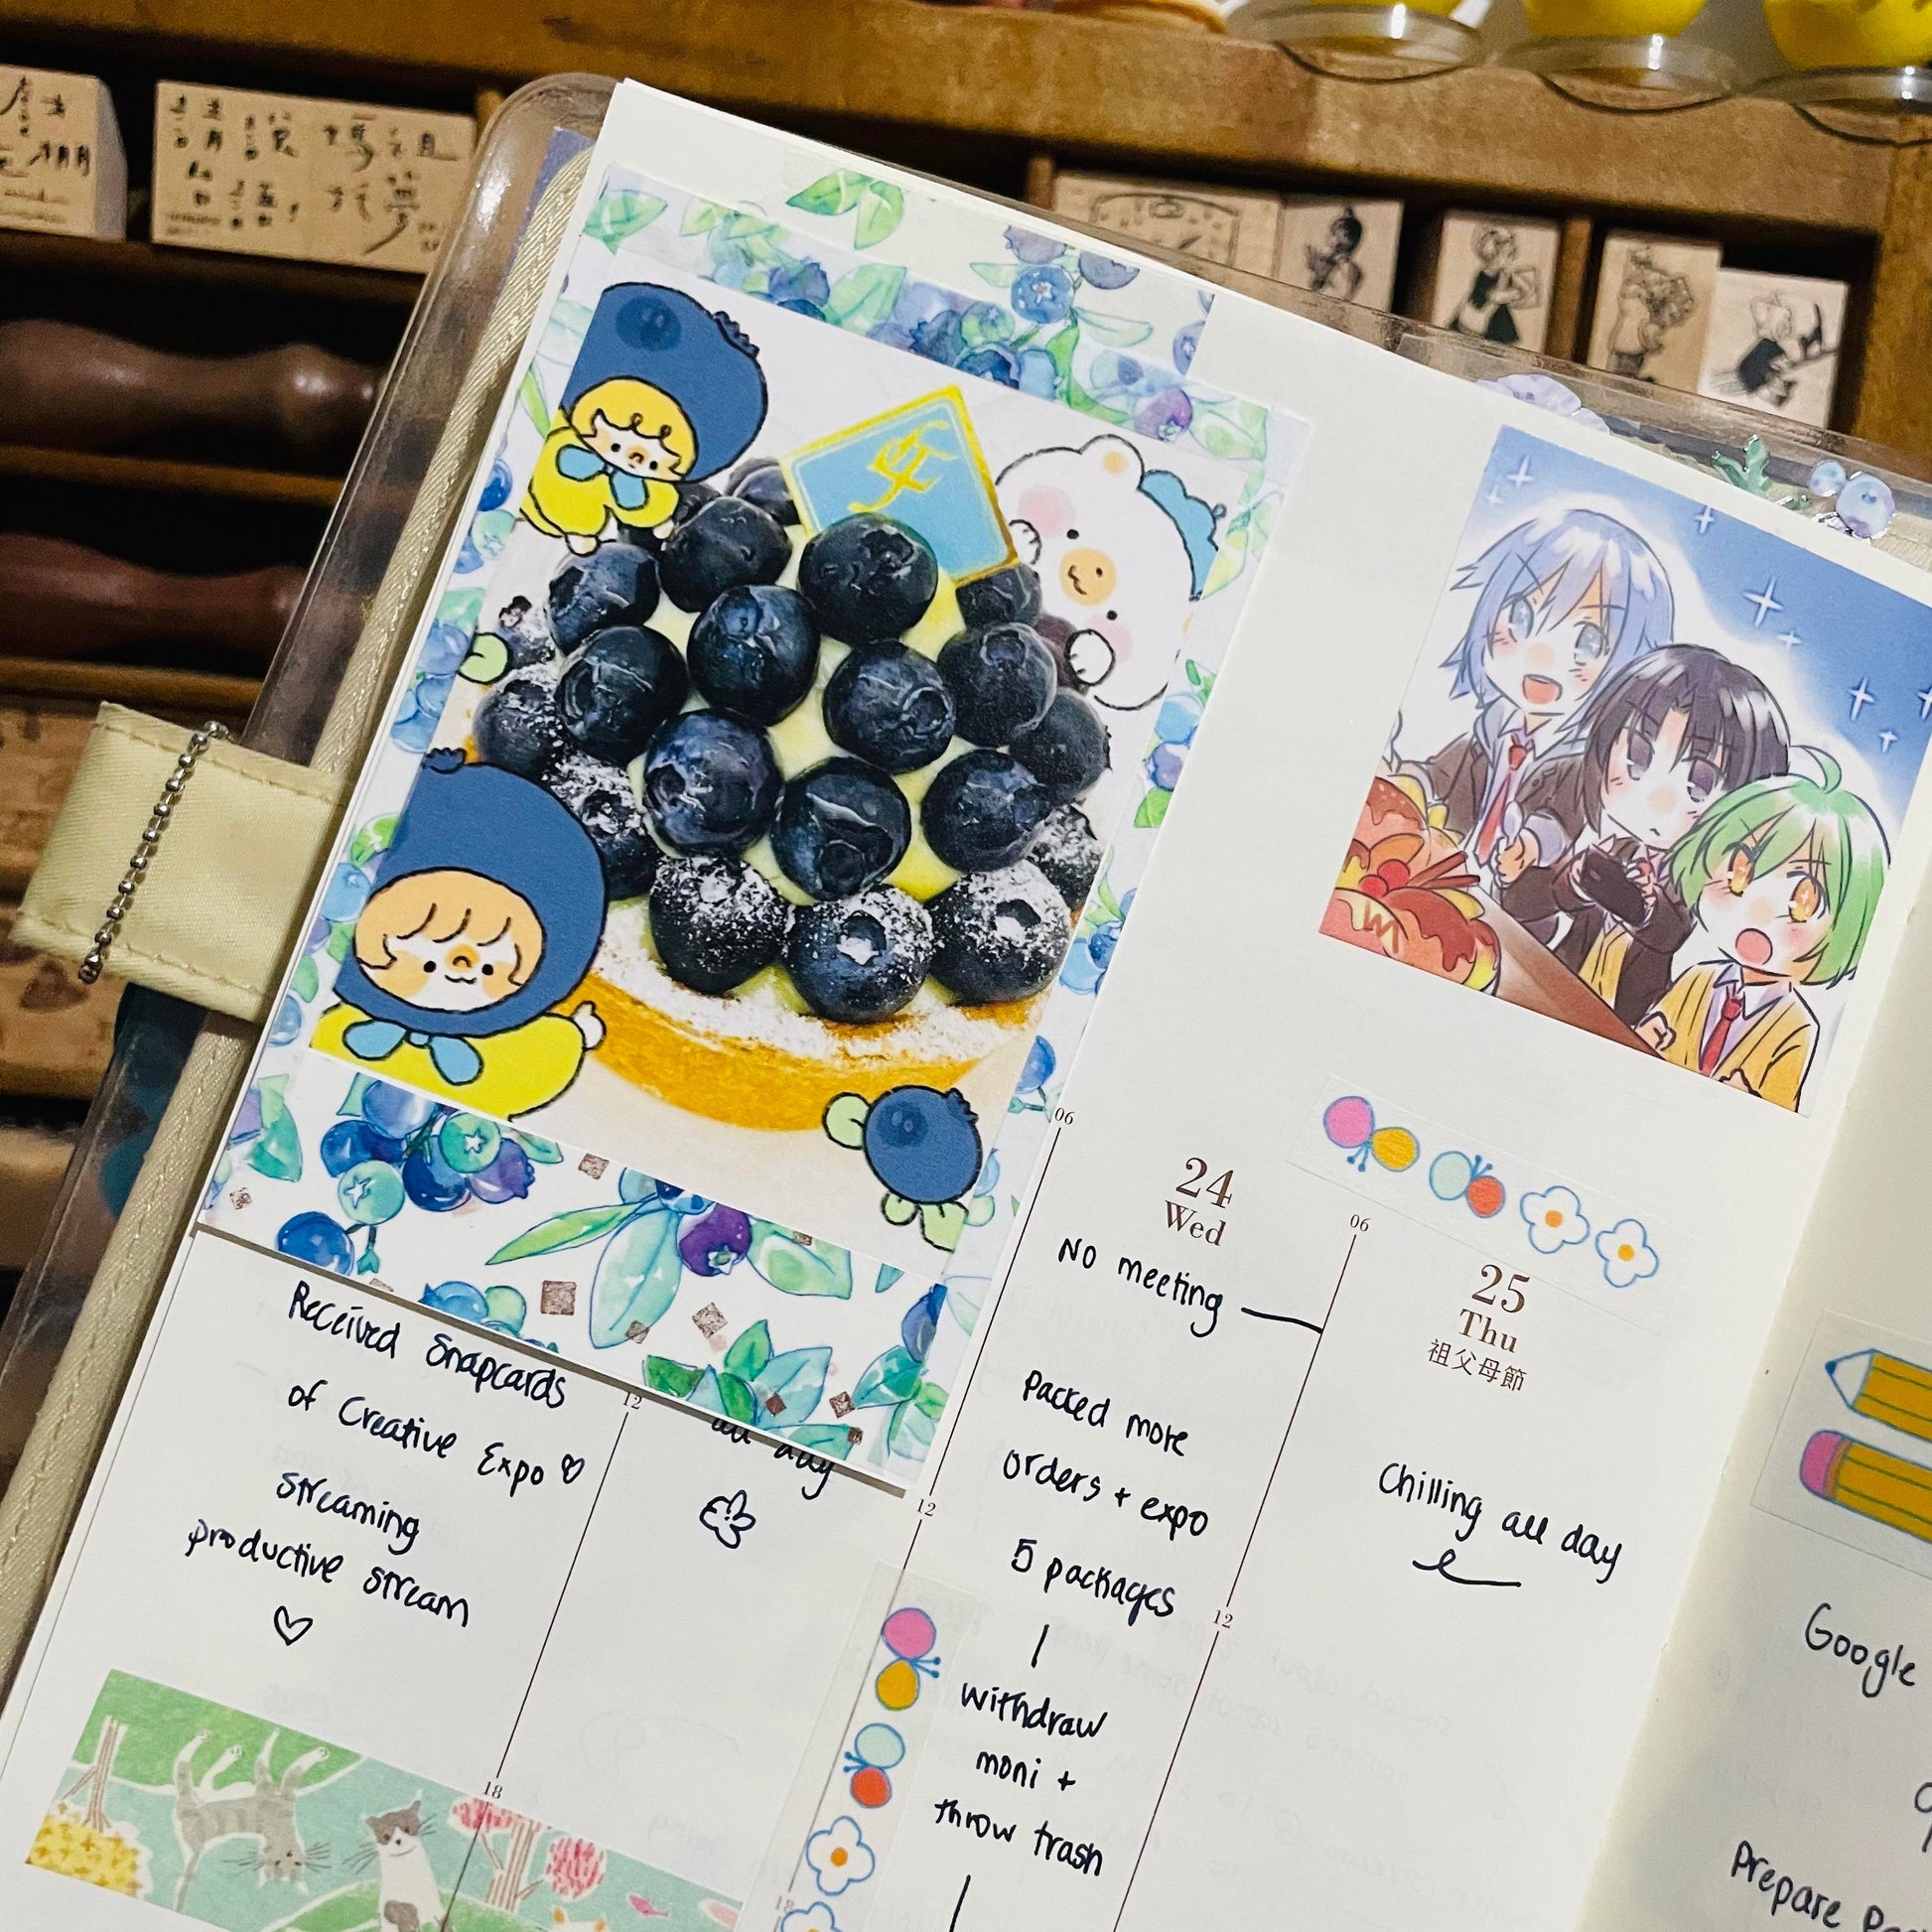 Received Snapcards
of Creative Expo
streaming
productive stream
12
18
all day
06
24
Wed
No meeting
Packed more
orders + expo
5 packages
withdraw
moni +
throw trash
12
18
06
25
Thu
祖父母節
Chilling all day
12
Google
Prepare